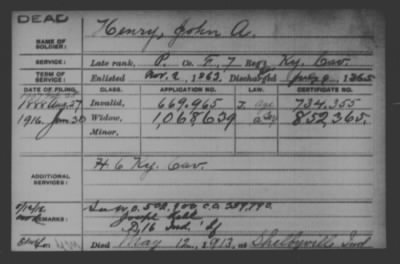 DEAD
NAME OF SOLDIER: Henry, John A.
SERVICE: Late rank, P. Co. F, 7 Reg't Ky. Cav.
TERM OF SERVICE: Enlisted Nov. 2, 1862. Discharged July 9, 1865
DATE OF FILING. CLASS. APPLICATION NO. LAW. CERTIFICATE NO.
1888 Aug 27 Invalid, 669.965 734,355
1916 Jan 30 Widow, 1,068,639 852,365.
Minor,
ADDITIONAL SERVICES: H 6 Ky. Cav.
REMARKS: W.O. 502,900 C.O. 359,790.
Joseph
D, 16 Ind. Inf
Died May 12, 1913, at Shelbyville Ind